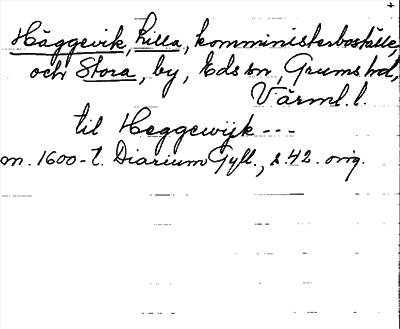 Häggevik, Lilla, komministerboställe,
och Stora, by, Eds sn, Grums hd,
Värml. l.
til Heggewijk ---
m. 1600-t. Diarium Gyll., s. 42. orig.